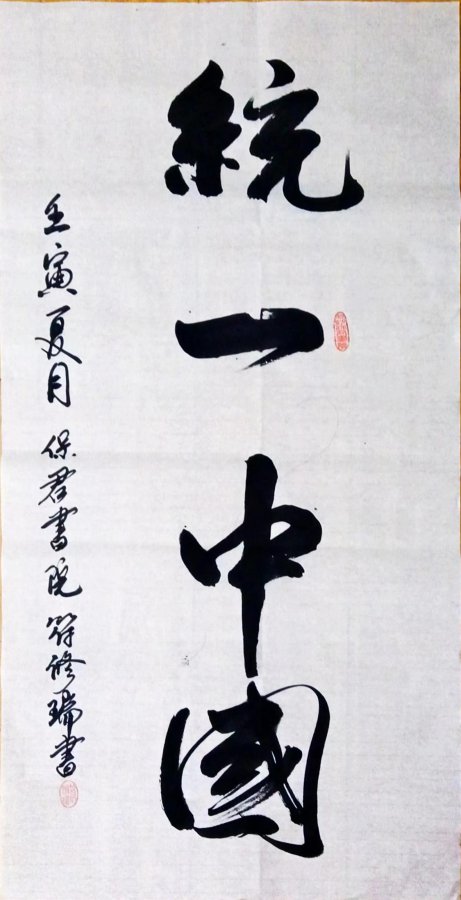 統一中國
壬寅夏月 保君書院 符修瑞書